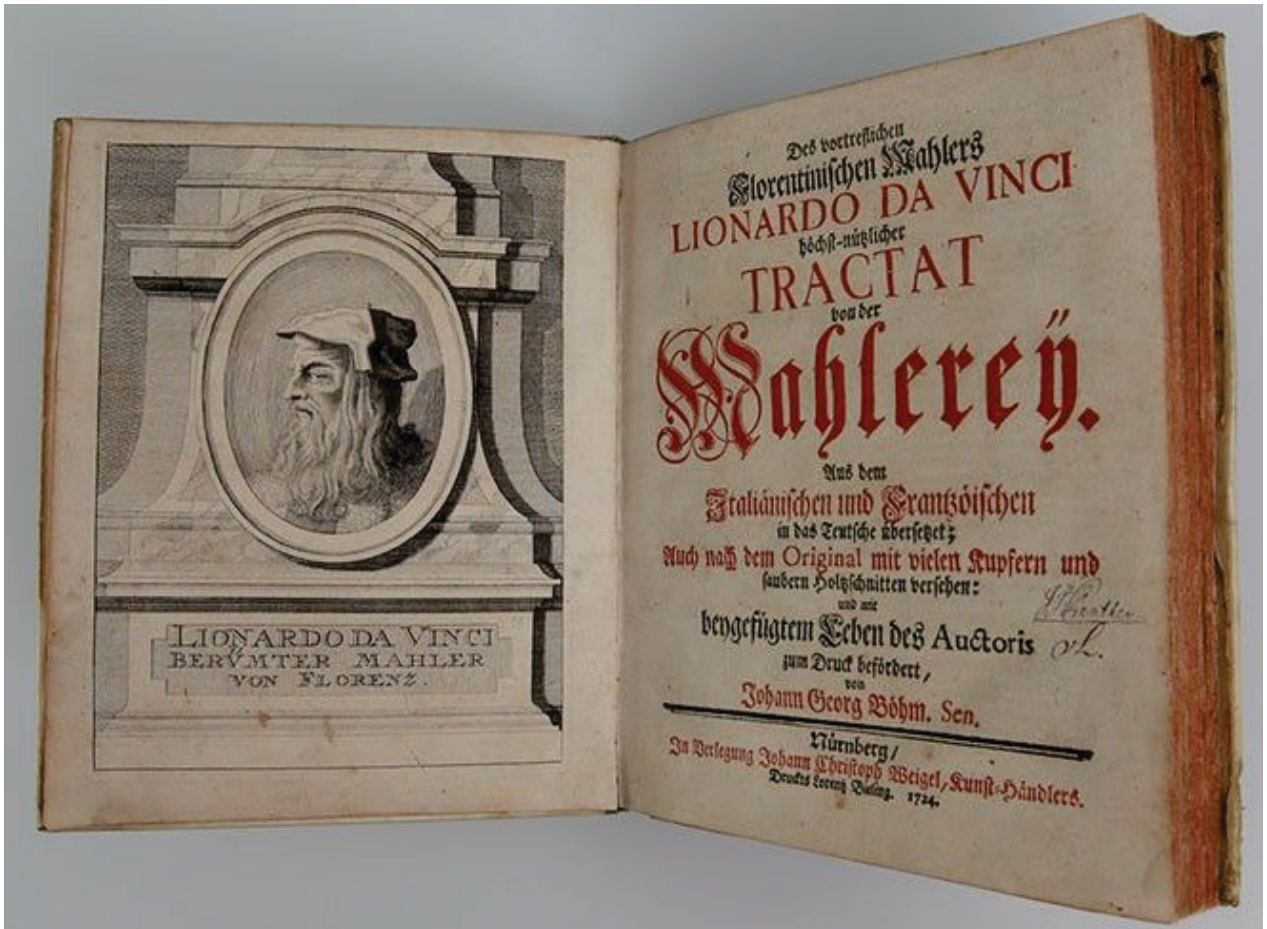 LIONARDO DA VINCI
BERVMTER MAHLER
VON FLORENZ.
Des vortreflichen
Florentinischen Mahlers
LIONARDO DA VINCI
höchst-nützlicher
TRACTAT
von der
Mahlereÿ.
Aus dem
Italiänischen und Frantzöischen
in das Teutsche übersetzet;
Auch nach dem Original mit vielen Kupfern und
saubern Holtzschnitten versehen:
und mit
beygefügtem Leben des Auctoris
zum Druck befördert,
von
Johann Georg Böhm. Sen.
Nürnberg/
In Verlegung Johann Christoph Weigel, Kunst-Händlers.
Druckts Lorentz Bieling. 1724.